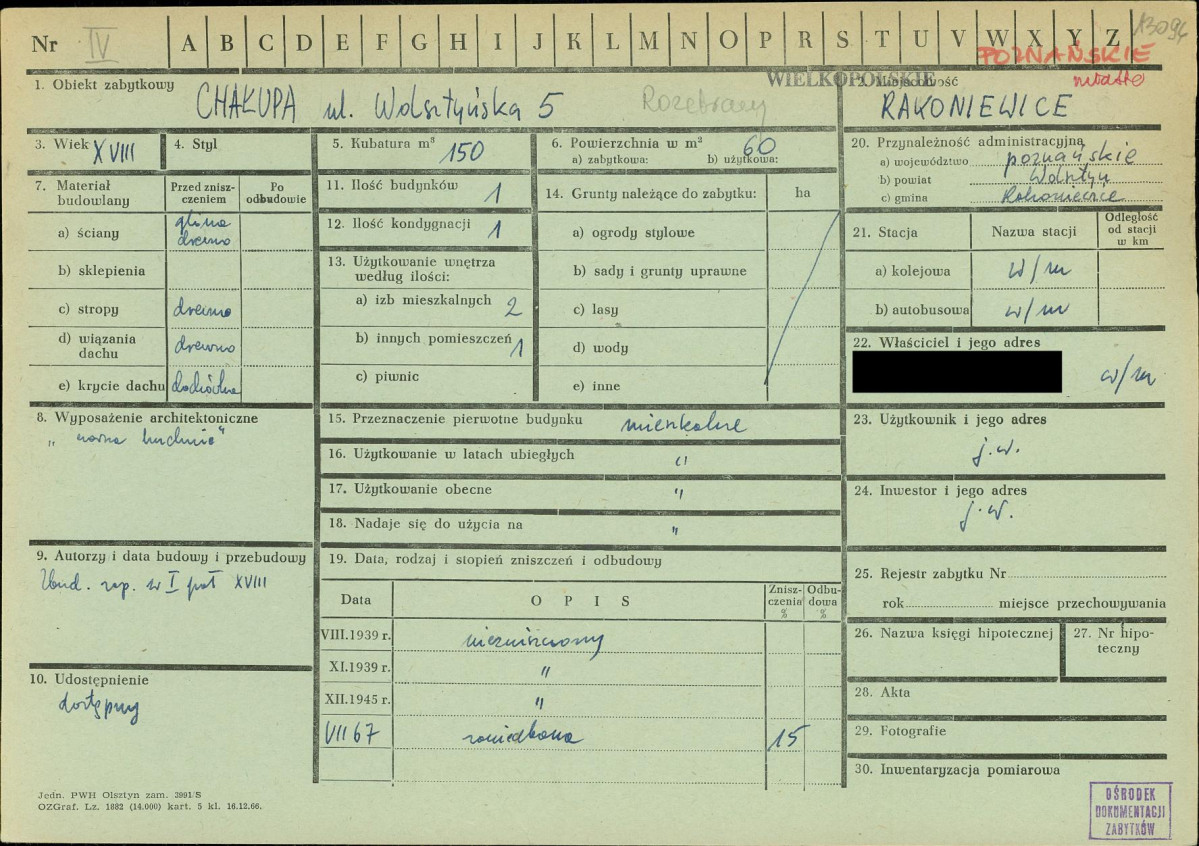 Nr IV A B C D E F G H I J K L M N O P R S T U V W X Y Z 13094
POZNAŃSKIE
WIELKOPOLSKIE miasto
1. Obiekt zabytkowy
CHAŁUPA ul. Wolsztyńska 5 Rozebrany
2. Miejscowość
RAKONIEWICE
3. Wiek XVIII
4. Styl
5. Kubatura m³ 150
6. Powierzchnia w m² 60
a) zabytkowa: b) użytkowa:
7. Materiał budowlany
Przed zniszczeniem
Po odbudowie
a) ściany glina drewno
b) sklepienia
c) stropy drewno
d) wiązania dachu drewno
e) krycie dachu dachówka
8. Wyposażenie architektoniczne
"czarna kuchnia"
9. Autorzy i data budowy i przebudowy
Zbud. zap. w I poł XVIII
10. Udostępnienie
dostępny
11. Ilość budynków 1
12. Ilość kondygnacji 1
13. Użytkowanie wnętrza
według ilości:
a) izb mieszkalnych 2
b) innych pomieszczeń 1
c) piwnic
14. Grunty należące do zabytku: ha
a) ogrody stylowe
b) sady i grunty uprawne
c) lasy
d) wody
e) inne
15. Przeznaczenie pierwotne budynku mieszkalne
16. Użytkowanie w latach ubiegłych "
17. Użytkowanie obecne "
18. Nadaje się do użycia na "
19. Data, rodzaj i stopień zniszczeń i odbudowy
Data OPIS Zniszczenia % Odbudowa %
VIII.1939 r. niezniszczony
XI.1939 r. "
XII.1945 r. "
VII 67 zaniedbana 15
20. Przynależność administracyjna
a) województwo poznańskie
b) powiat Wolsztyn
c) gmina Rakoniewice
21. Stacja Nazwa stacji Odległość od stacji w km
a) kolejowa w/m
b) autobusowa w/m
22. Właściciel i jego adres
w/m
23. Użytkownik i jego adres
j.w.
24. Inwestor i jego adres
j.w.
25. Rejestr zabytku Nr
rok miejsce przechowywania
26. Nazwa księgi hipotecznej
27. Nr hipoteczny
28. Akta
29. Fotografie
30. Inwentaryzacja pomiarowa
Jedn. PWH Olsztyn zam. 3991/S
OZGraf. Lz. 1882 (14.000) kart. 5 kl. 16.12.66.
OŚRODEK
DOKUMENTACJI
ZABYTKÓW